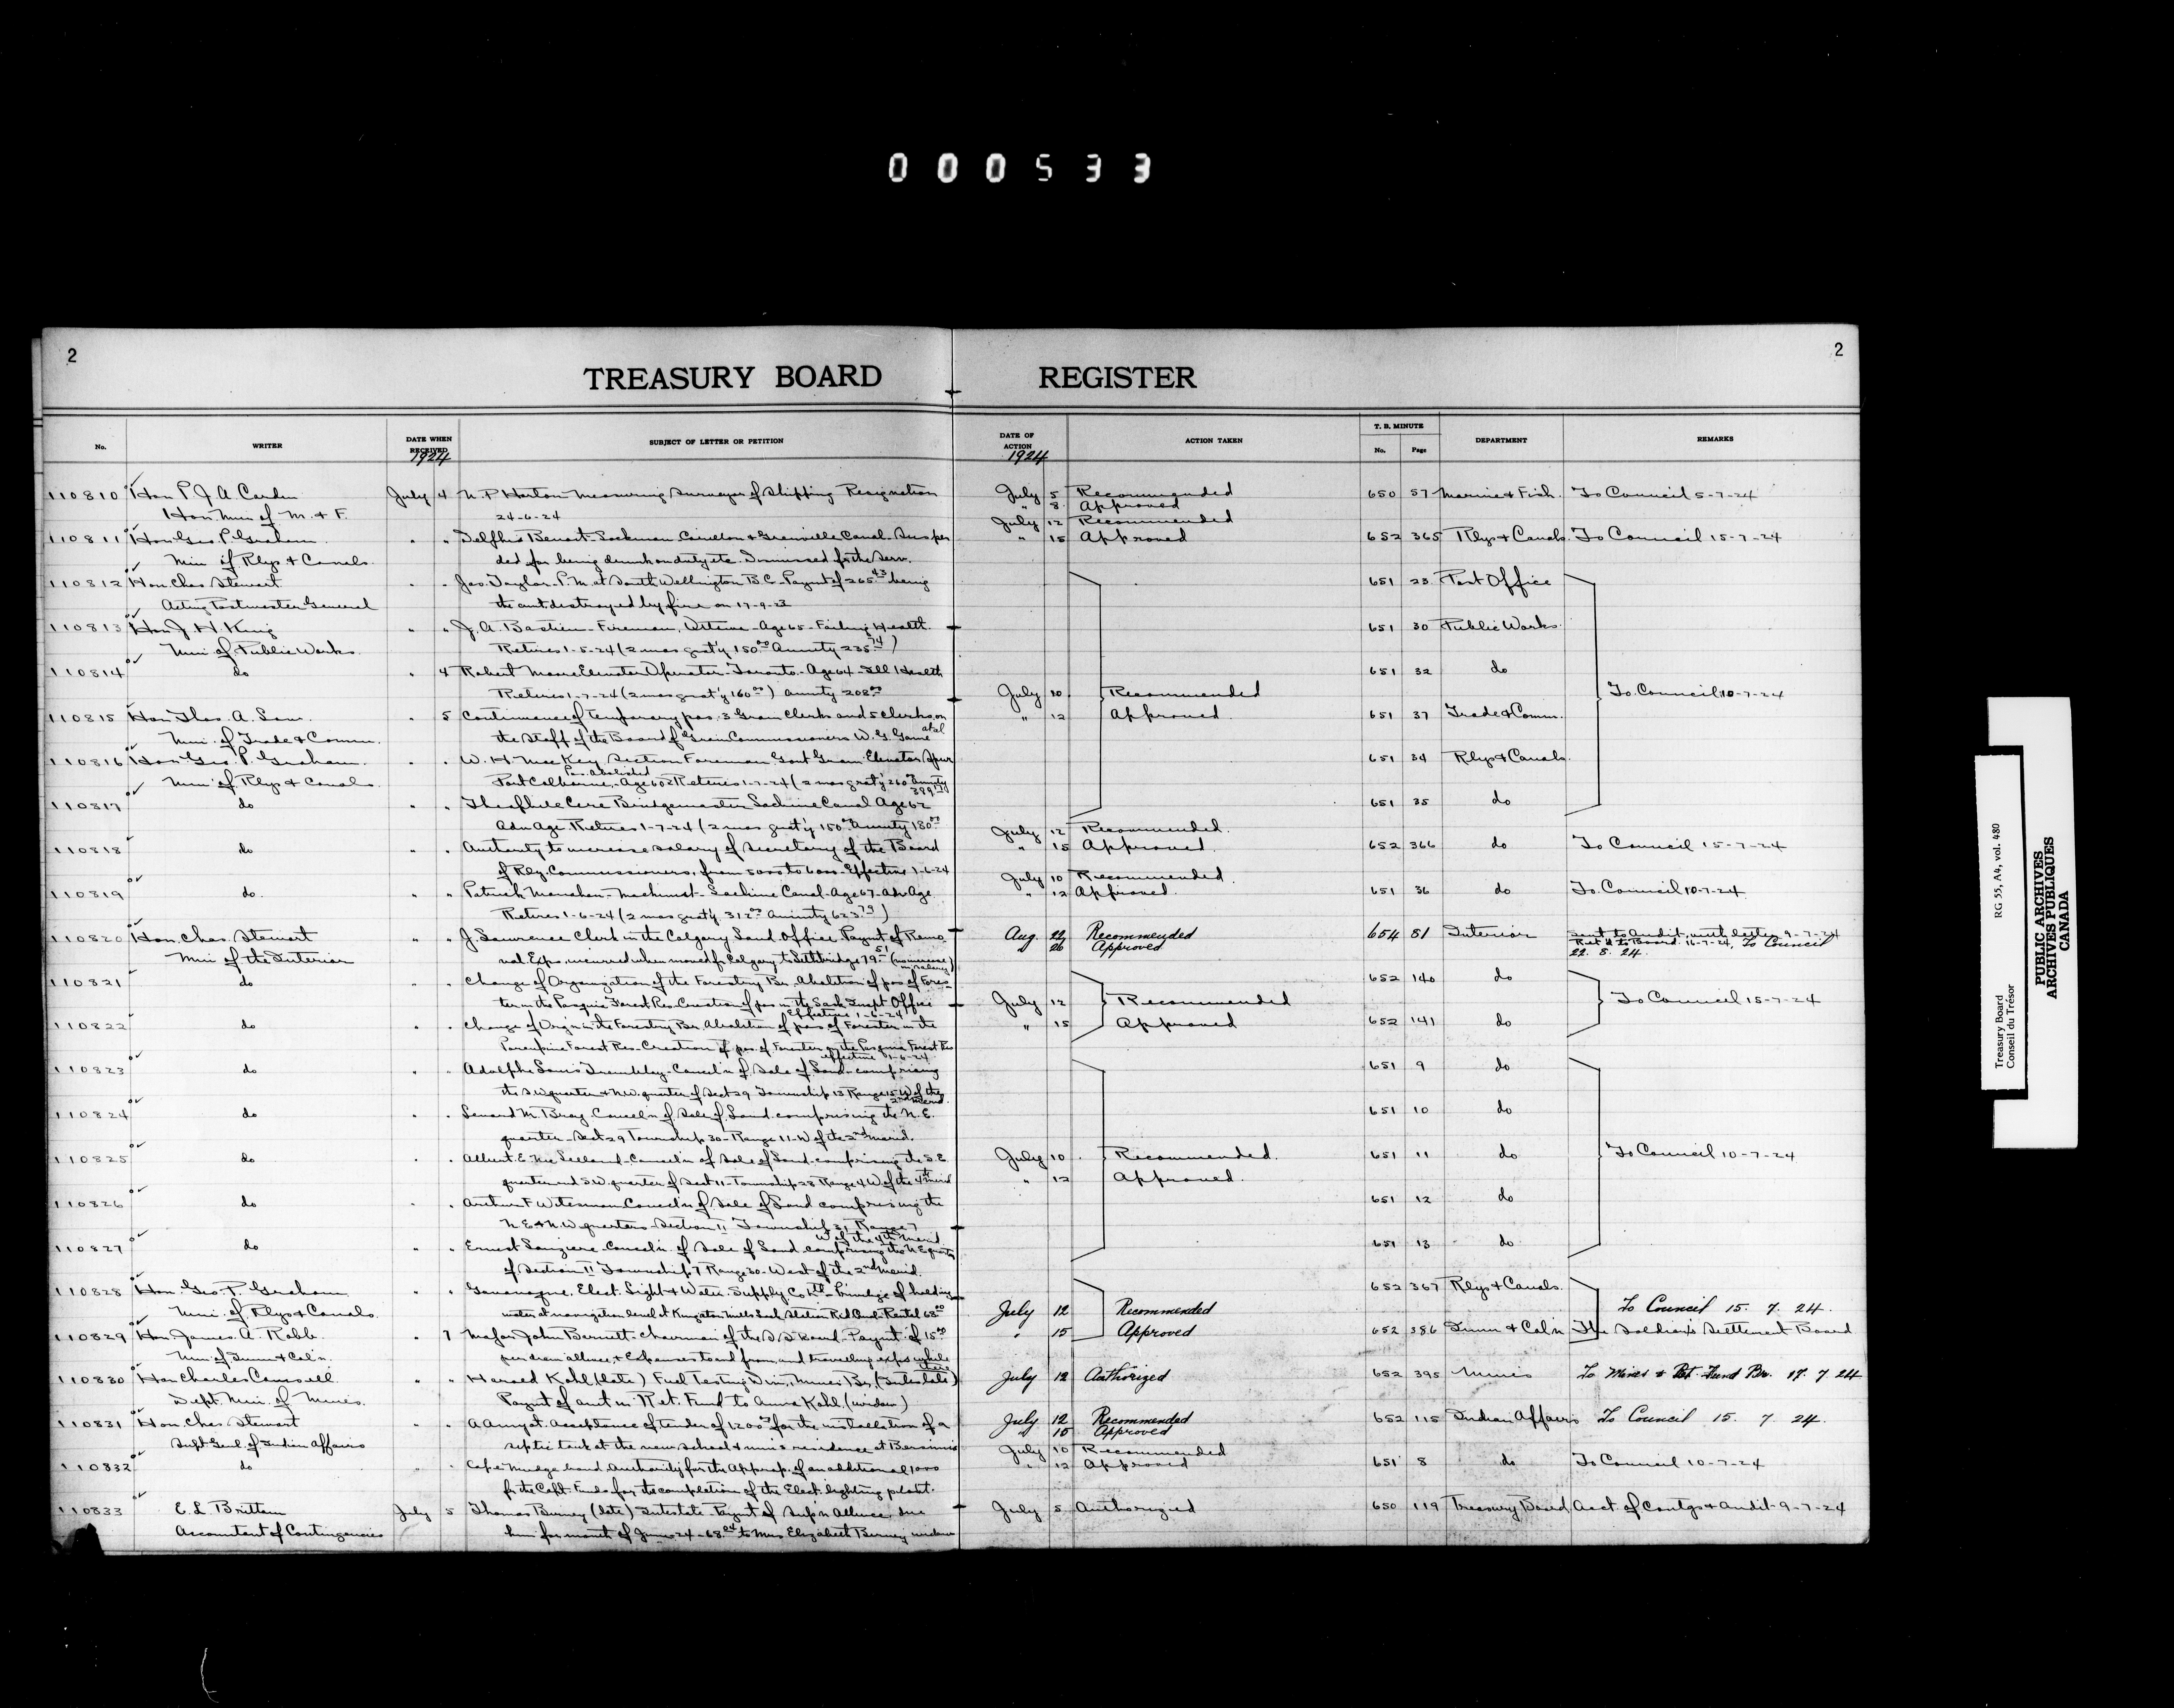 000533
2
2
TREASURY BOARD REGISTER
No. WRITER DATE WHEN RECEIVED SUBJECT OF LETTER OR PETITION DATE OF ACTION ACTION TAKEN T. B. MINUTE No. Page DEPARTMENT REMARKS
1924 1924
110810 Hon P J A Cardin July 4 N. P. Horton Measuring Surveyor of Shipping Resignation July 5 Recommended 650 57 Marine & Fish. To Council 5-7-24
Hon. Min of M. & F. 24-6-24 " 8 Approved
110811 Hon Geo. P. Graham " " Delphis Benoit Lockman Carillon & Grenville Canal Suspen July 12 Recommended
Min of Rlys & Canals ded for being drunk on duty etc. Dismissed fr the Serv. " 15 Approved 652 365 Rlys & Canals To Council 15-7-24
110812 Hon Chas Stewart " " Jas. Taylor P.M. at South Wellington B.C. Paymt of 265.43 being 651 23 Post Office
Acting Postmaster General the amt destroyed by fire on 17-9-23
110813 Hon J. H. King " " J. A. Bastien - Fireman, Ottawa - Age 65 - Failing Health. 651 30 Public Works
Min of Public Works Retires 1-5-24 (2 mos grat'y 150.00 Annuity 235.74)
110814 do " 4 Robert Moore Elevator Operator Toronto Age 64 - Ill Health 651 32 do
Retires 1-7-24 (2 mos grat'y 160.00) annuity 208.00 July 10 Recommended To Council 10-7-24
110815 Hon Thos. A. Low " 5 Continuance of temporary pos. 3 Grain Clerks and 5 Clerks on " 12 Approved 651 37 Trade & Comm.
Min. of Trade & Comm. the Staff of the Board of Grain Commissioners W. G. Game et al
110816 Hon Geo. P. Graham " " W. H. MacKey Section Foreman Govt Grain Elevator Spur 651 34 Rlys & Canals
Min. of Rlys & Canals Port Colborne - Age 60 Pos. Abolished Retires 1-7-24 (2 mos grat'y 260 Annuity
110817 do " " Theophile Cere Bridgemaster Lachine Canal Age 62 651 35 do
Adv Age. Retires 1-7-24 (2 mos grat'y 150.00 Annuity 180.00 July 12 Recommended
110818 do " " Authority to increase salary of Secretary of the Board " 15 Approved 652 366 do To Council 15-7-24
of Rly. Commissioners, from 5000 to 6000 - Effective 1-6-24
110819 do " " Patrick Monahan - Machinist - Lachine Canal - Age 67 - Adv Age July 10 Recommended " 12 Approved 651 36 do To Council 10-7-24
Retires 1-6-24 (2 mos grat'y. 312.00 Annuity 623.79)
110820 Hon. Chas. Stewart " " J. Lawrence Clerk in the Calgary Land Office Paymt of Remo Aug 22 Recommended 654 51 Interior Sent to Audit with letter 9-7-24
Min of the Interior val Exps. incurred when moved fr Calgary to Lethbridge 79.51 (no increase in salary) " 26 Approved Ret'd to Board 16-7-24, To Council 22. 8. 24.
110821 do " " Change of Organization of the Forestry Br. Abolition of pos of Fores 652 140 do
ter in the Pasquia Forest Res. Creation of pos in the Sask Inspt Office Effective 1-6-24 July 12 Recommended To Council 15-7-24
110822 do " " Change of Org'n in the Forestry Br. Abolition of pos of Forester in the " 15 Approved 652 141 do
Porcupine Forest Res - Creation of pos. of Forester in the Pasquia Forest Res effective 1-6-24
110823 do " " Adolphe Louis Tremblay - Cancel'n of Sale of Land - comprising 651 9 do
the S.W. quarter & N.W. quarter of Sect 29 Township 13 Range 15 W of the 2nd Merid.
110824 do " " Lenard M. Bray Cancel'n of Sale of Land comprising the N. E. 651 10 do
quarter - Sect 29 Township 30 - Range 11 - W of the 2nd Merid.
110825 do " " Albert E. Cancel'n of Sale of Land comprising the S.E. July 10 Recommended 651 11 do To Council 10-7-24
quarter and S.W. quarter of Sect 11 - Township 28 Range 4 W of the 4th Merid " 12 Approved
110826 do " " Arthur F Cancel'n of Sale of Land comprising the 651 12 do
N.E & N.W quarters - Section 11 Township 31 Range 7 W of the 4th Merid.
110827 do " " Ernest Cancel'n of Sale of Land comprising the N.E quarter 651 13 do
of Section 11 Township 7 Range 30 - West of the 2nd Merid.
110828 Hon. Geo. P. Graham " " Gananoque Elect. Light & Water Supply Co Ltd - Privilege of holding 652 367 Rlys & Canals
Min. of Rlys & Canals water at navigation level at Kingston Mills Lock Station Rid Canal - Rental 68.00 July 12 Recommended To Council 15. 7. 24.
110829 Hon. James A. Robb " 7 Major John Barnett - Chairman of the S S Board - Paymt of 15.00 " 15 Approved 652 386 Imm & Col'n The Soldier's Settlement Board
Min of Imm & Col'n. per diem allnce. & Expenses to and from and travelling exps while there
110830 Hon Charles Camsell " " Harald Kohl (late) Fuel Testing Div., Mines Br. (Intestate) July 12 Authorized 652 395 Mines To Mines & Ret. Fund Br. 17. 7 24
Dept. Min. of Mines. Paymt of amt in Ret. Fund to Anna Kohl. (widow)
110831 Hon. Chas. Stewart " " Acceptance of tender of 1200.00 for the installation of a July 12 Recommended 652 115 Indian Affairs To Council 15. 7. 24.
Supt Genl of Indian Affairs septic tank at the new school & nun's residence at Bersimis " 15 Approved
110832 do " " Cape Mudge band Authority for the Approp. of an additional 1000 July 10 Recommended " 12 Approved 651 8 do To Council 10-7-24
fr the Capt. Funds for the completion of the Elect. lighting plant.
110833 E. L. Brittain July 5 Thomas Burney (late) Intestate - Paymt of Sup'n Allnce due July 5 Authorized 650 119 Treasury Board Acct. of Contgs & Audit - 9-7-24
Accountant of Contingencies him for month of June 24 - 68.04 to Mrs Elizabeth Burney widow
Treasury Board RG 55, A4, vol. 480
Conseil du Trésor
PUBLIC ARCHIVES
ARCHIVES PUBLIQUES
CANADA